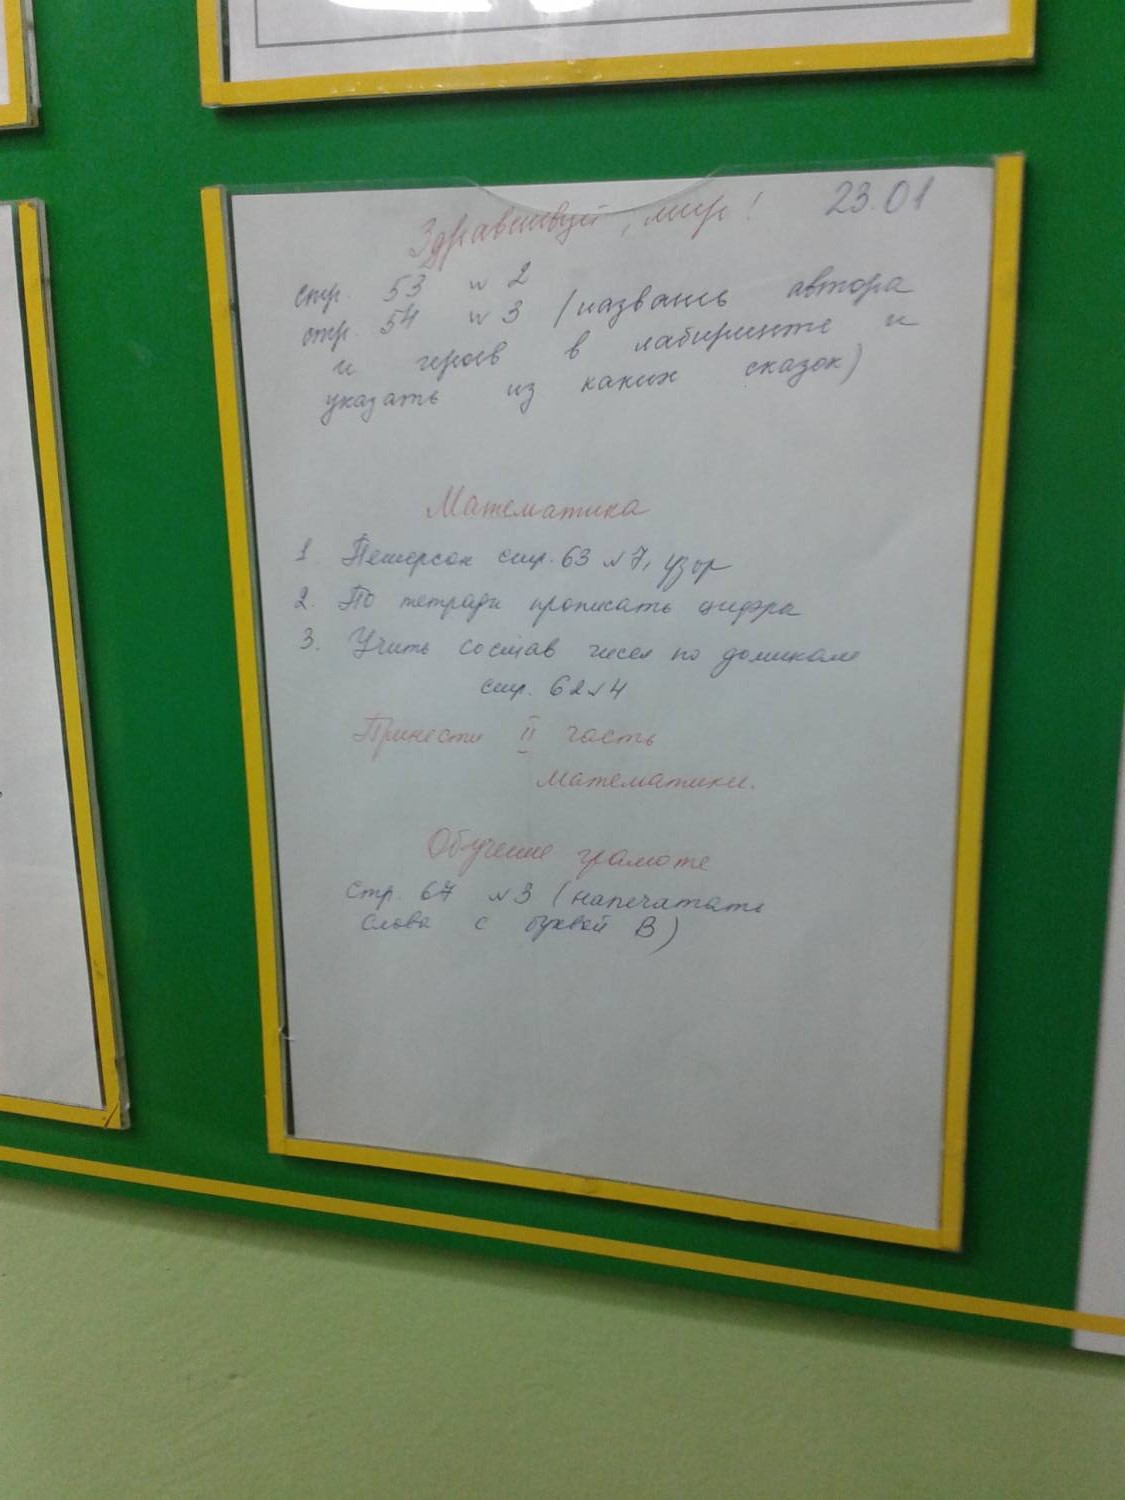 Здравствуй, мир! 23.01
стр. 53 № 2
стр. 54 № 3 (назвать автора
и героев в лабиринте и
указать из каких сказок)
Математика
1 Петерсон стр. 63 №7, узор
2. По тетради прописать цифра
3. Учить состав чисел по домикам
стр. 62 №4
Принести II часть
математики.
Обучение грамоте
Стр. 67 №3 (напечатать
слова с буквой В)